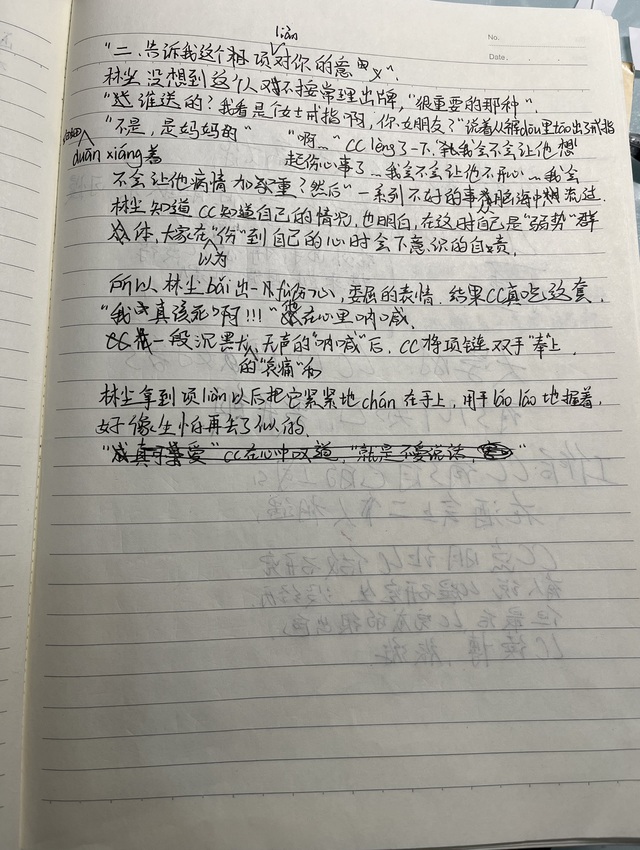 No.
Date.
liàn
"二.告诉我这个项对你的意义".
林尘没想到这个人不按常理出牌,"很重要的那种".
"谁送的?我看是个女士戒指啊,你女朋友?"说着从解dōu里tāo出了戒指
duān xiáng着
"不是,是妈妈的" "啊…" CC lèng了一下."我会不会让他想
起伤心事了…我会不会让他不开心…我会
不会让他病情加重?然后"一系列不好的事在脑海中涌流过.
林尘知道CC知道自己的情况,也明白,在这时自己是"弱势"群
体,大家在"伤"到自己的心时会下意识的自责,
以为
所以林尘bǎi出一副伤心,委屈的表情.结果CC真吃这套,
"我真该死啊!!!"在心里呐喊.
CC 一段沉默,无声的"呐喊"后,CC将项链双手"奉"上.
的"哀痛"和
林尘拿到项liàn以后把它紧紧地chán在手上,用手láo láo地握着,
好像生怕再丢了似的.
"真可爱" CC在心中叹道,"就是不爱说话,"